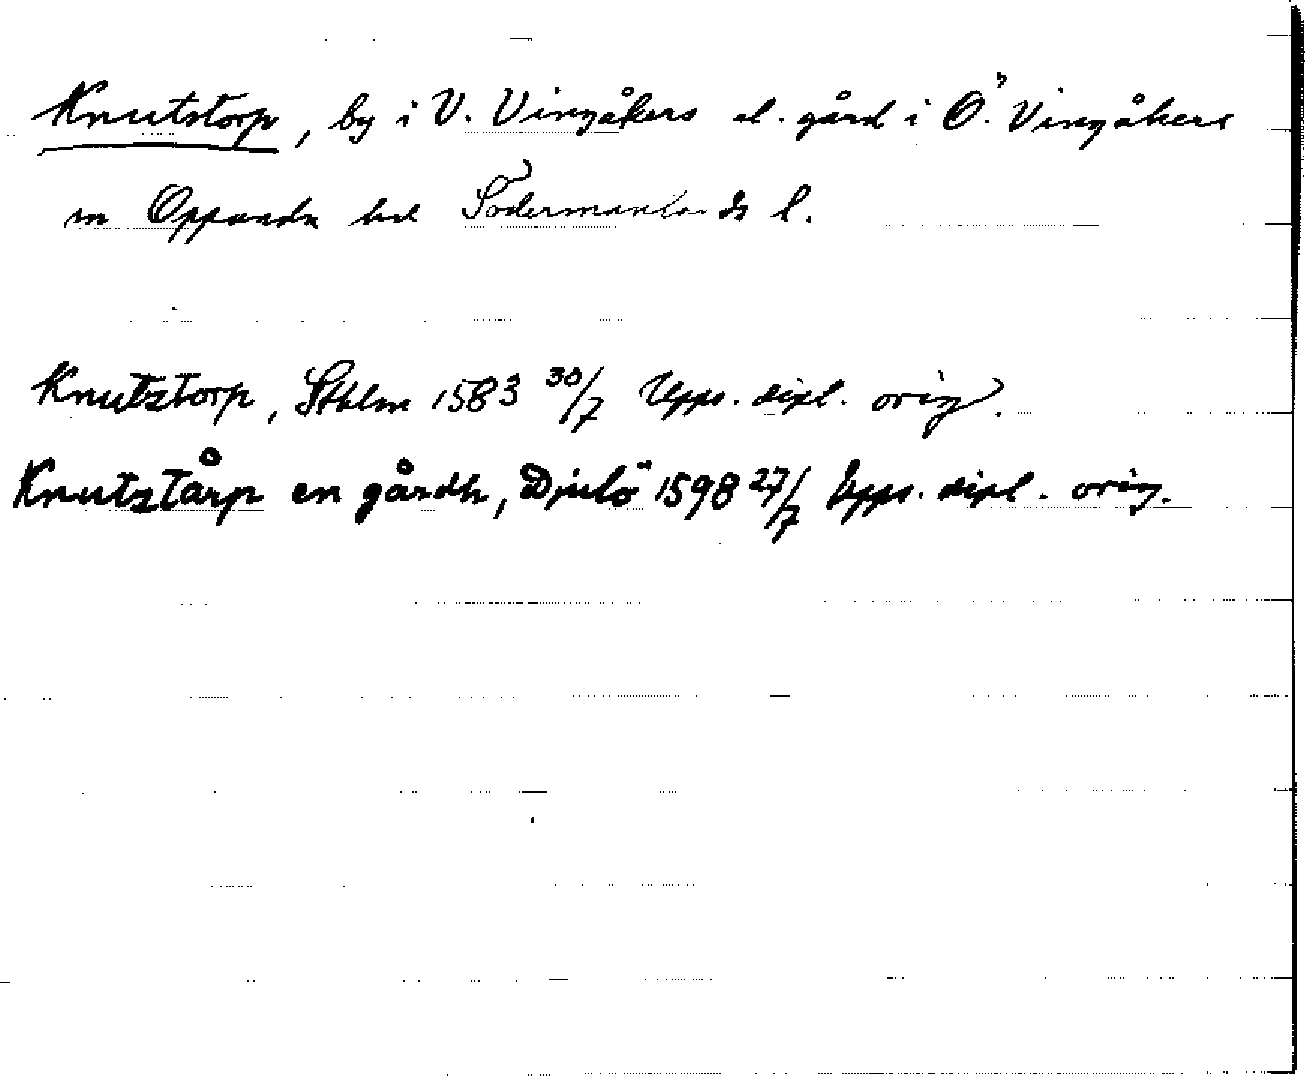 Knutstorp, by i V. Vingåkers el. gård i Ö. Vingåkers
sn Oppunda hd Södermanlands l.
Knutztorp, Sthlm 1583 30/7 Upps. dipl. orig.
Knutztårp en gårdh, Djulö 1598 27/7 Upps. dipl. orig.